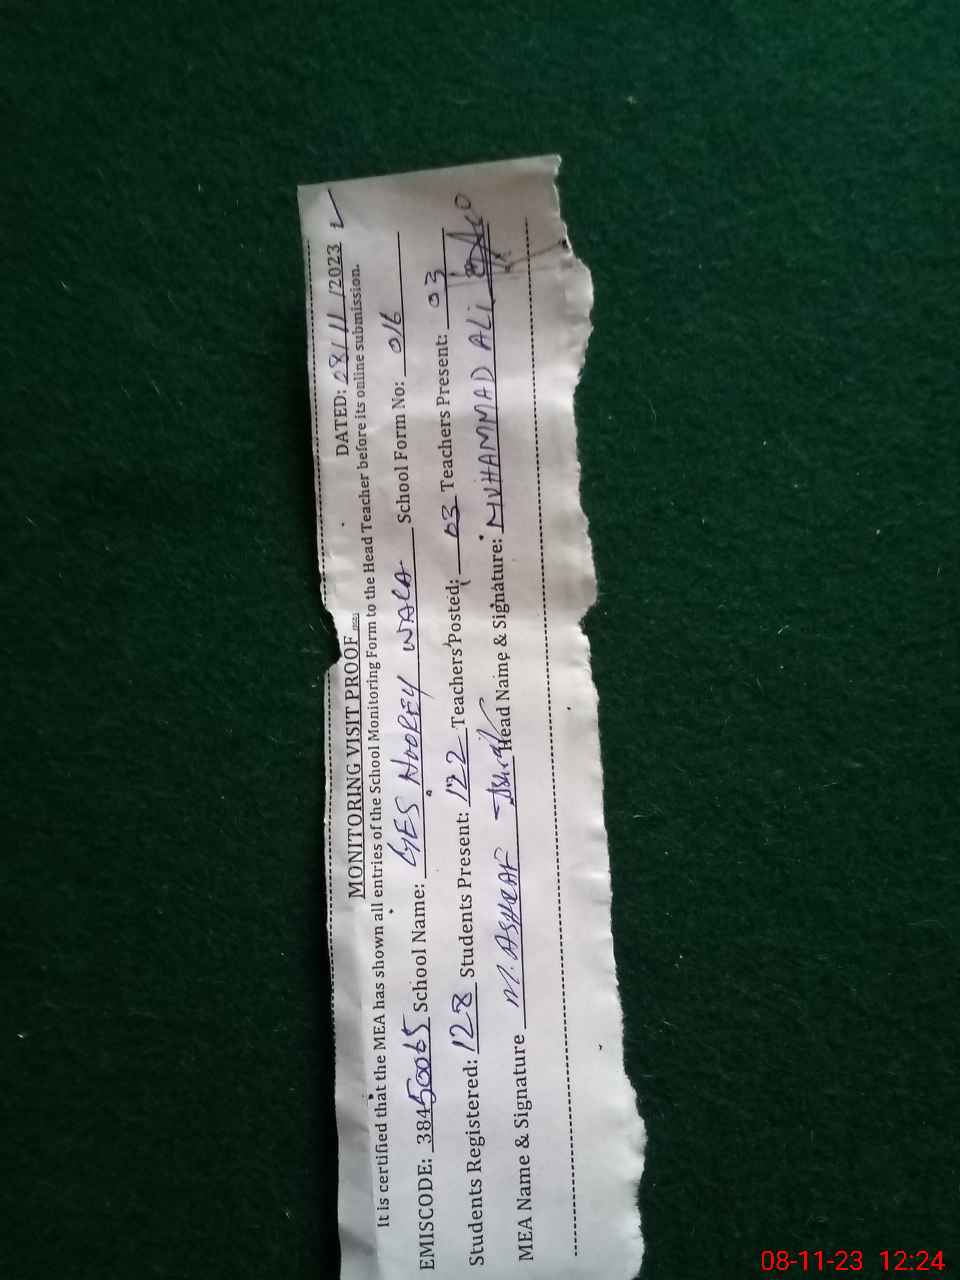 MONITORING VISIT PROOF DATED: 08/11/2023
It is certified that the MEA has shown all entries of the School Monitoring Form to the Head Teacher before its online submission.
EMISCODE: 38450065 School Name: GES NOOREY WALA School Form No: 016
Students Registered: 128 Students Present: 122 Teachers Posted: 03 Teachers Present: 03
MEA Name & Signature M. ASHRAF Ashraf Head Name & Signature: MUHAMMAD ALI
08-11-23 12:24